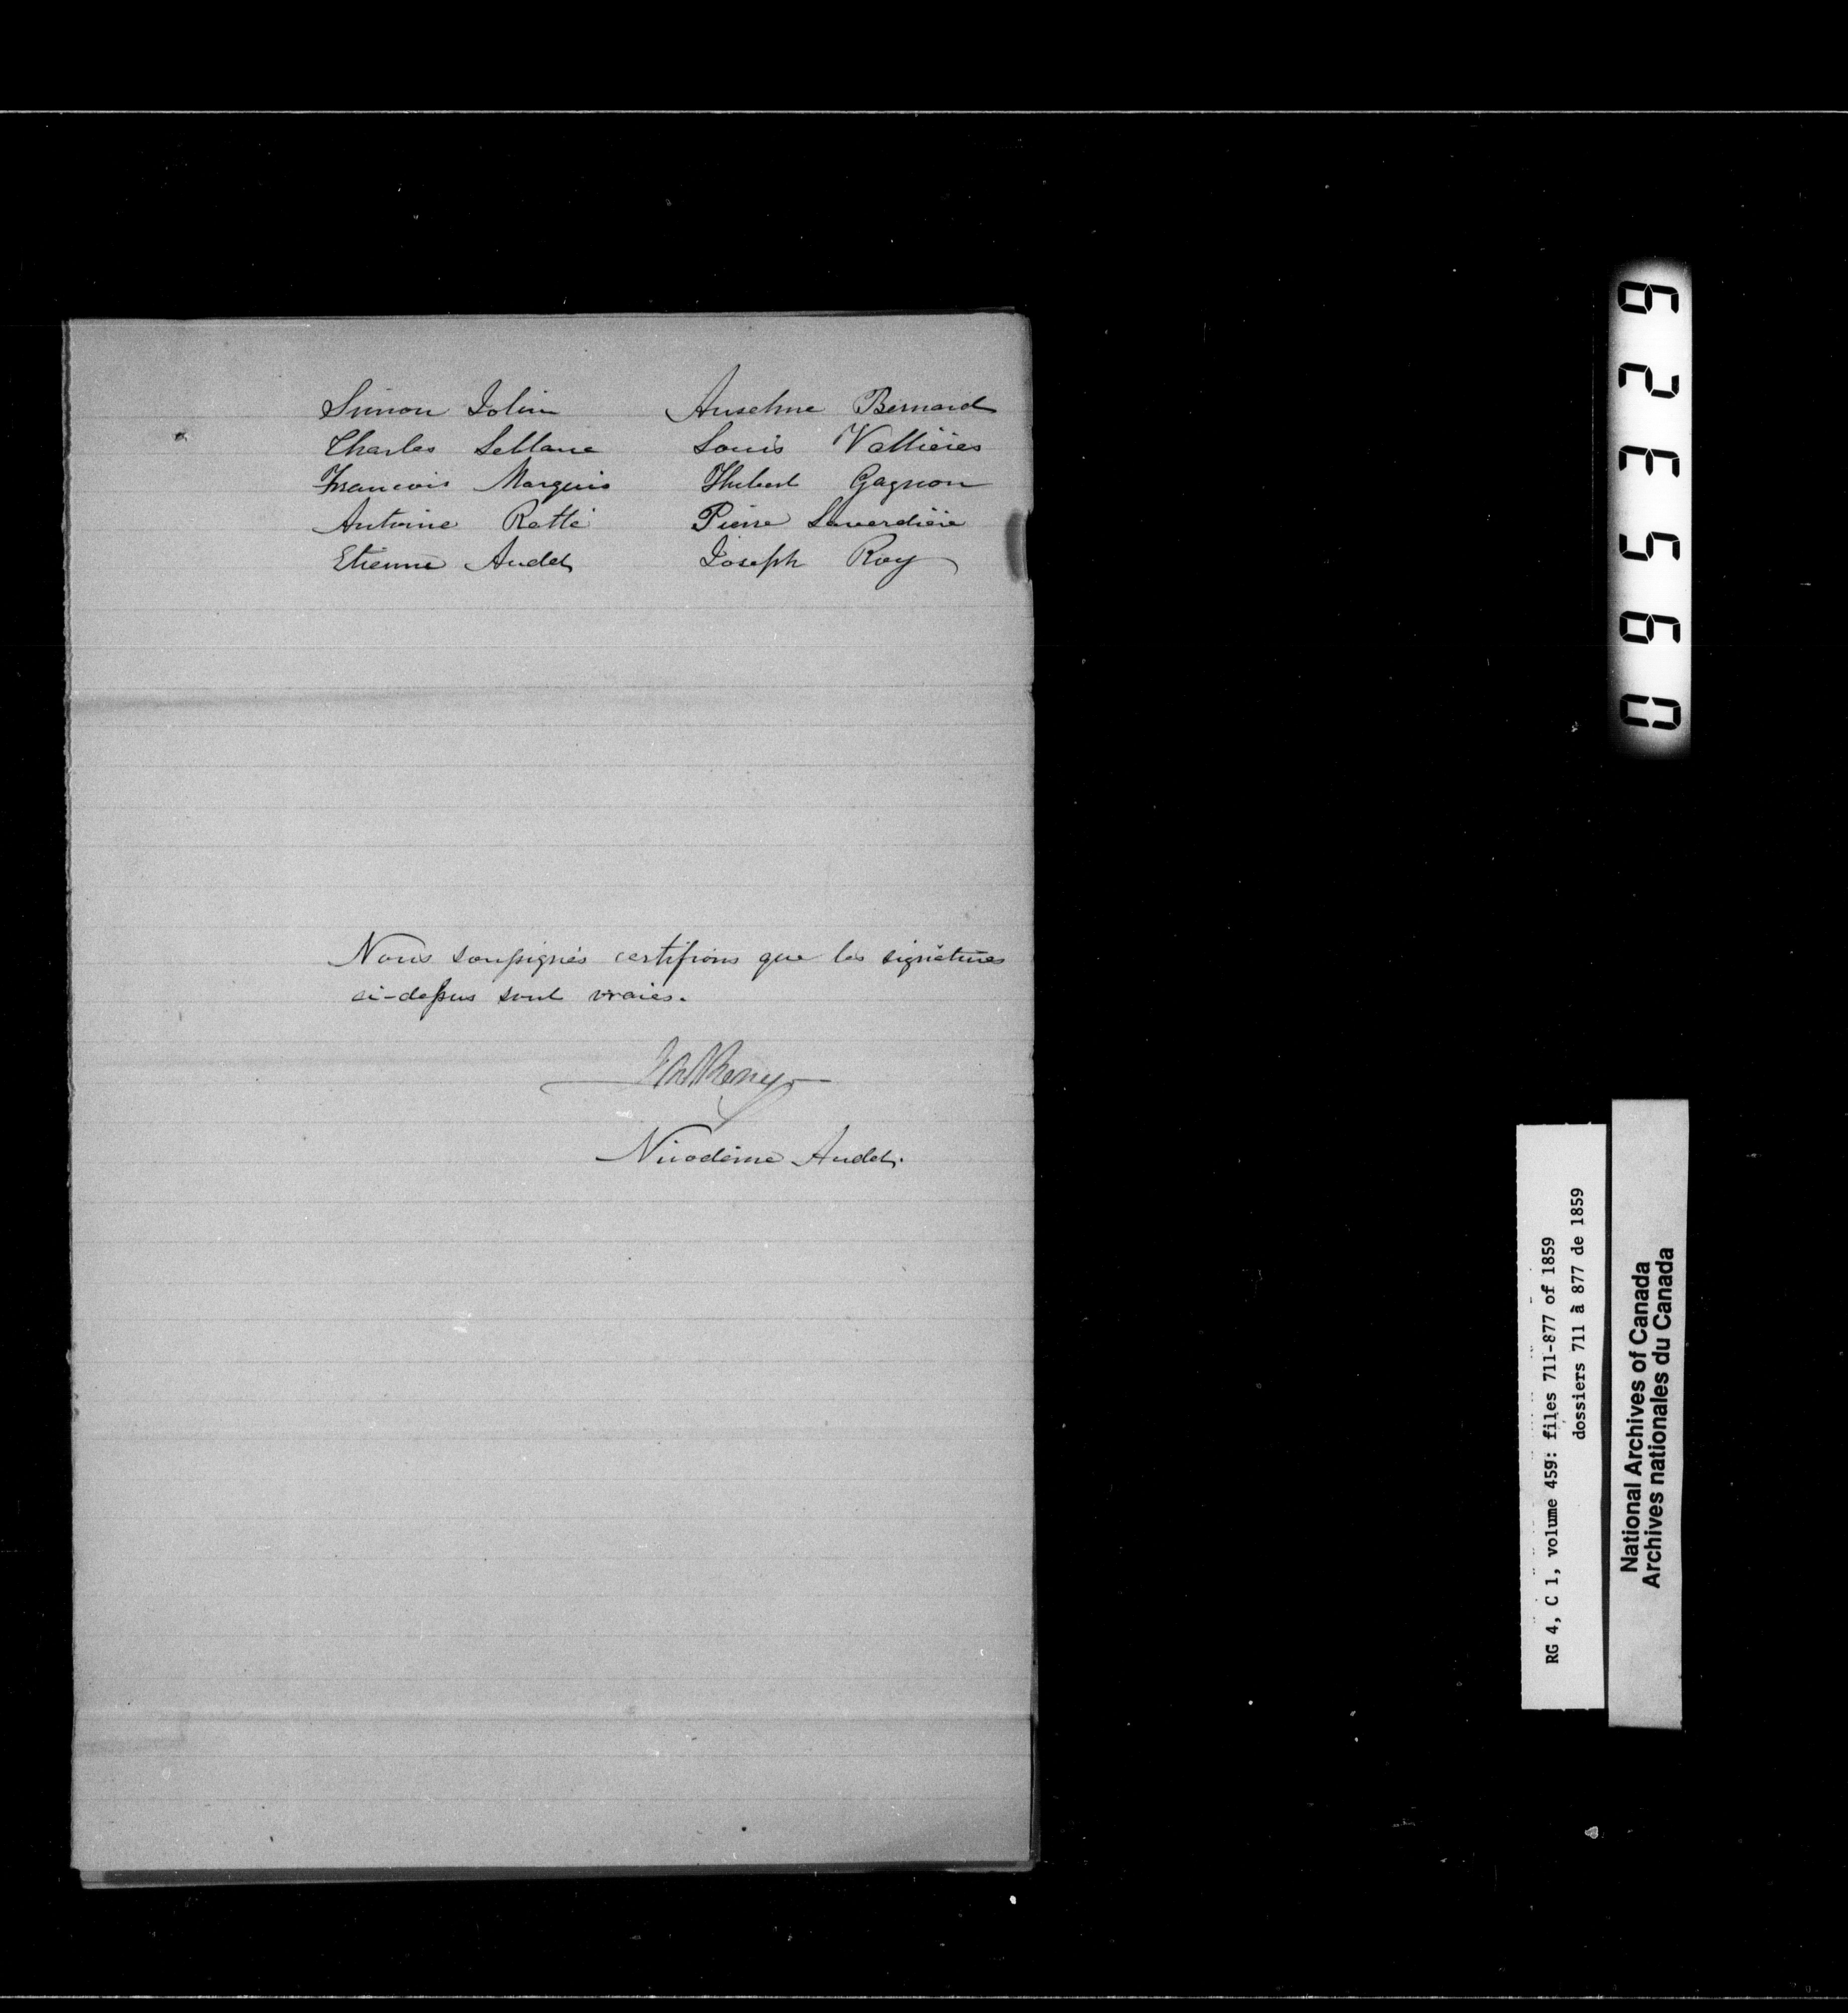 Simon Jolin Anselme Bernard
Charles Leblanc Louis Vallières
Francois Marquis Hubert Gagnon
Antoine Ratté Pierre Laverdière
Etienne Audet Joseph Roy
Nous soussignés certifions que les signatures
ci-dessus sont vraies.
Nicodème Audet.
062356
RG 4, C 1, volume 459: files 711-877 of 1859
dossiers 711 à 877 de 1859
National Archives of Canada
Archives nationales du Canada